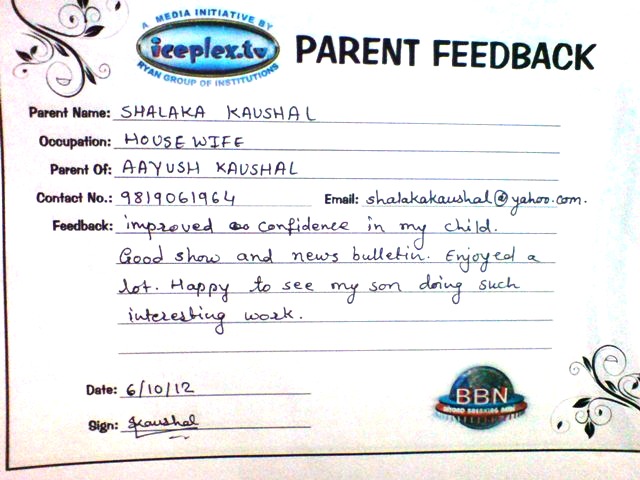 A MEDIA INITIATIVE BY
iceplex.tv
RYAN GROUP OF INSTITUTIONS
PARENT FEEDBACK
Parent Name: SHALAKA KAUSHAL
Occupation: HOUSE WIFE
Parent Of: AAYUSH KAUSHAL
Contact No.: 9819061964 Email: shalakakaushal@yahoo.com.
Feedback: improved confidence in my child.
Good show and news bulletin. Enjoyed a
lot. Happy to see my son doing such
interesting work.
Date: 6/10/12
Sign: Kaushal
BBN
BEYOND BREAKING NEWS